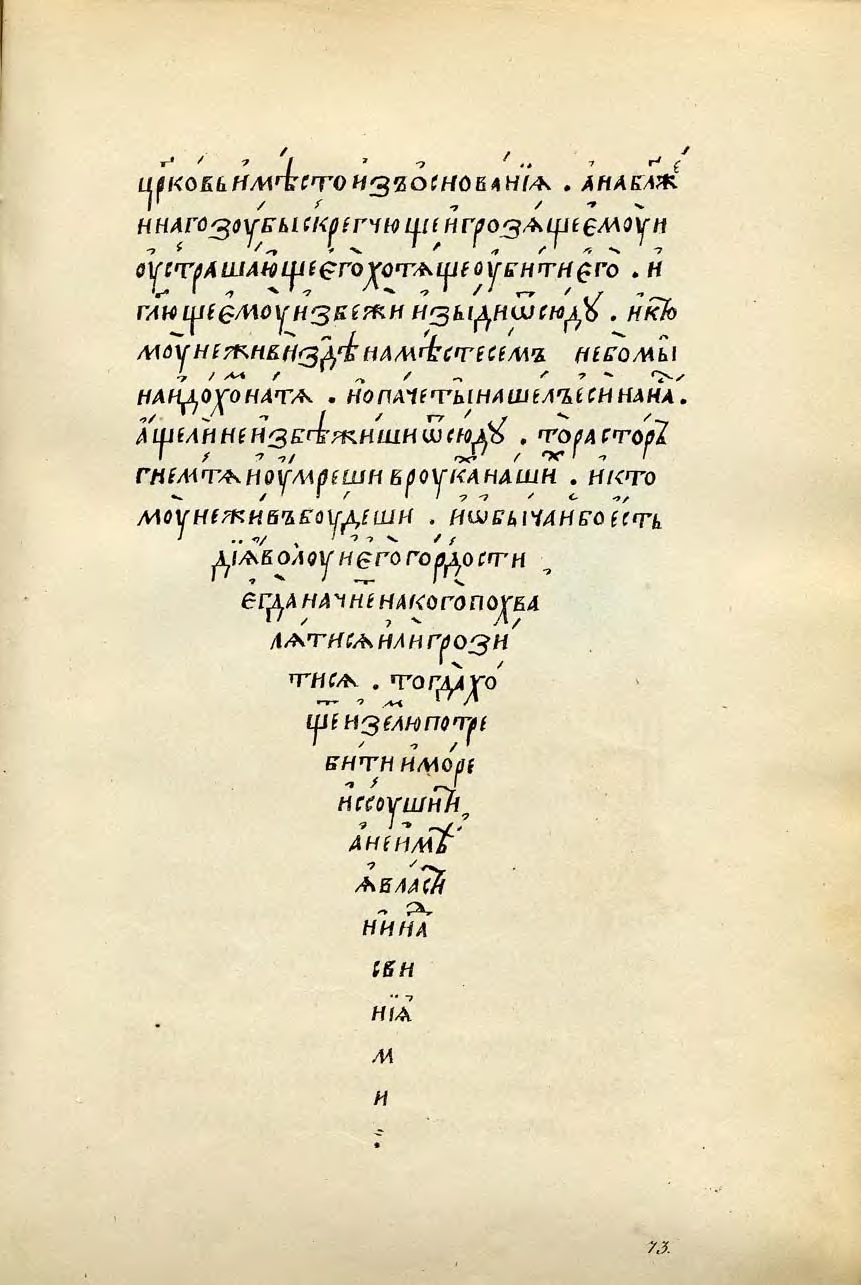 цр҃ковь и҆мѣсто и҆зъ основанїѧ . а҆набл҃же
ннаго зоубы скрегчюще и҆грозѧще є҆моу и҆
оу҆страшающе є҆го хотѧще оу҆бити є҆го . и҆
гл҃юще є҆моу и҆збежи и҆зыди ѿсюдꙋ . и҆кто
моу неживи здѣ намѣсте семъ небо мы
наидохо натѧ . но паче ты нашелъ еси нана .
а҆ще ли не и҆збѣжиши ѿсюдꙋ . то расторъ
гнем тѧ и҆оу҆мреши вроука наши . и҆кто
моу не живъ боудеши . и҆ѡбычаи бо е҆сть
дїѧволоу и҆є҆го гордости
є҆гда начне накого похва
лѧтисѧ и҆ли грози
тисѧ . тогда хо
ще и҆землю потре
бити и҆море
и҆ссоушити
а҆не и҆мѣ
ѧ҆ власти
ни на
сви
нїѧ
м
и